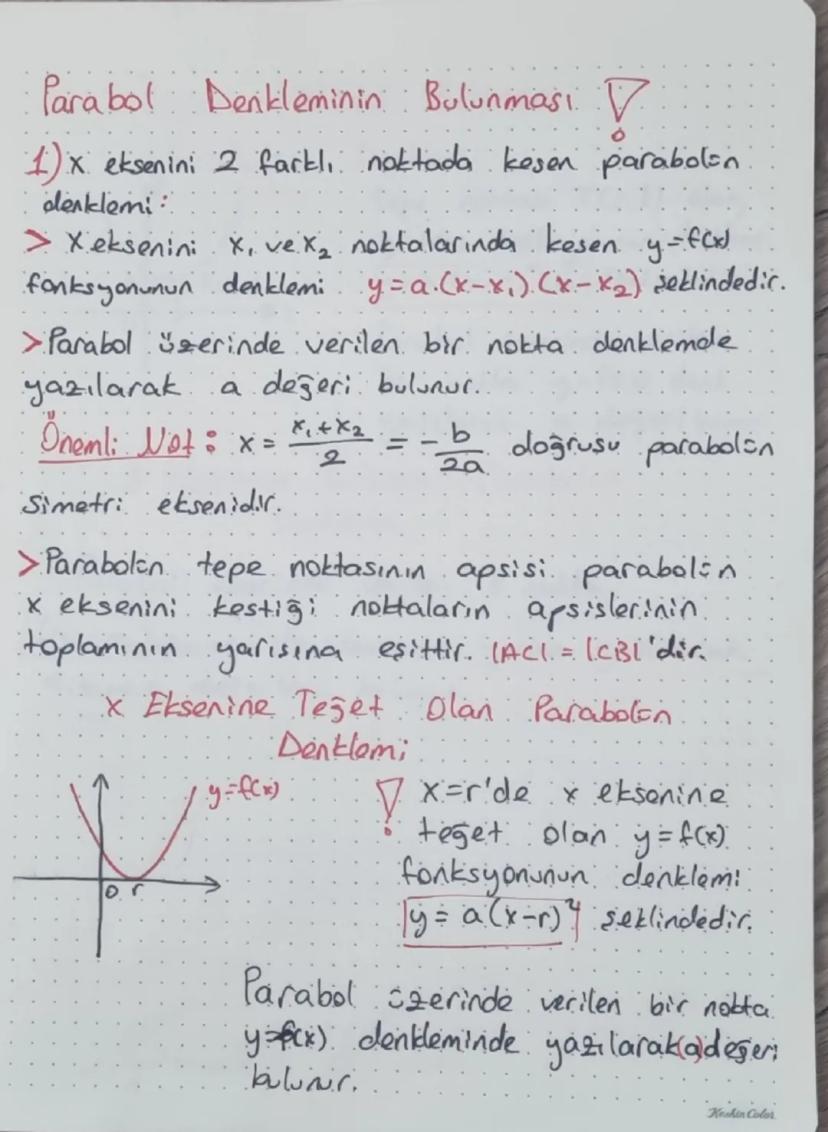 Parabol Denkleminin Bulunması !
1) x eksenini 2 farklı noktada kesen parabolün
denklemi:
> X eksenini x₁ ve x₂ noktalarında kesen y=f(x)
fonksyonunun denklemi y=a.(x-x₁).(x-x₂) şeklindedir.
> Parabol üzerinde verilen bir nokta denklemde
yazılarak a değeri bulunur.
Önemli Not: x = (x₁+x₂)/2 = -b/2a doğrusu parabolün
Simetri eksenidir.
> Parabolün tepe noktasının apsisi parabolün
x eksenini kestiği noktaların apsislerinin
toplamının yarısına eşittir. |AC| = |CB|'dir.
x Eksenine Teğet Olan Parabolün
Denklemi
y=f(x)
0 r
! x=r'de x eksenine
teğet olan y=f(x)
fonksyonunun denklemi
y = a(x-r)² şeklindedir.
Parabol üzerinde verilen bir nokta
y=f(x) denkleminde yazılarak (a) değeri
bulunur.
Keskin Color